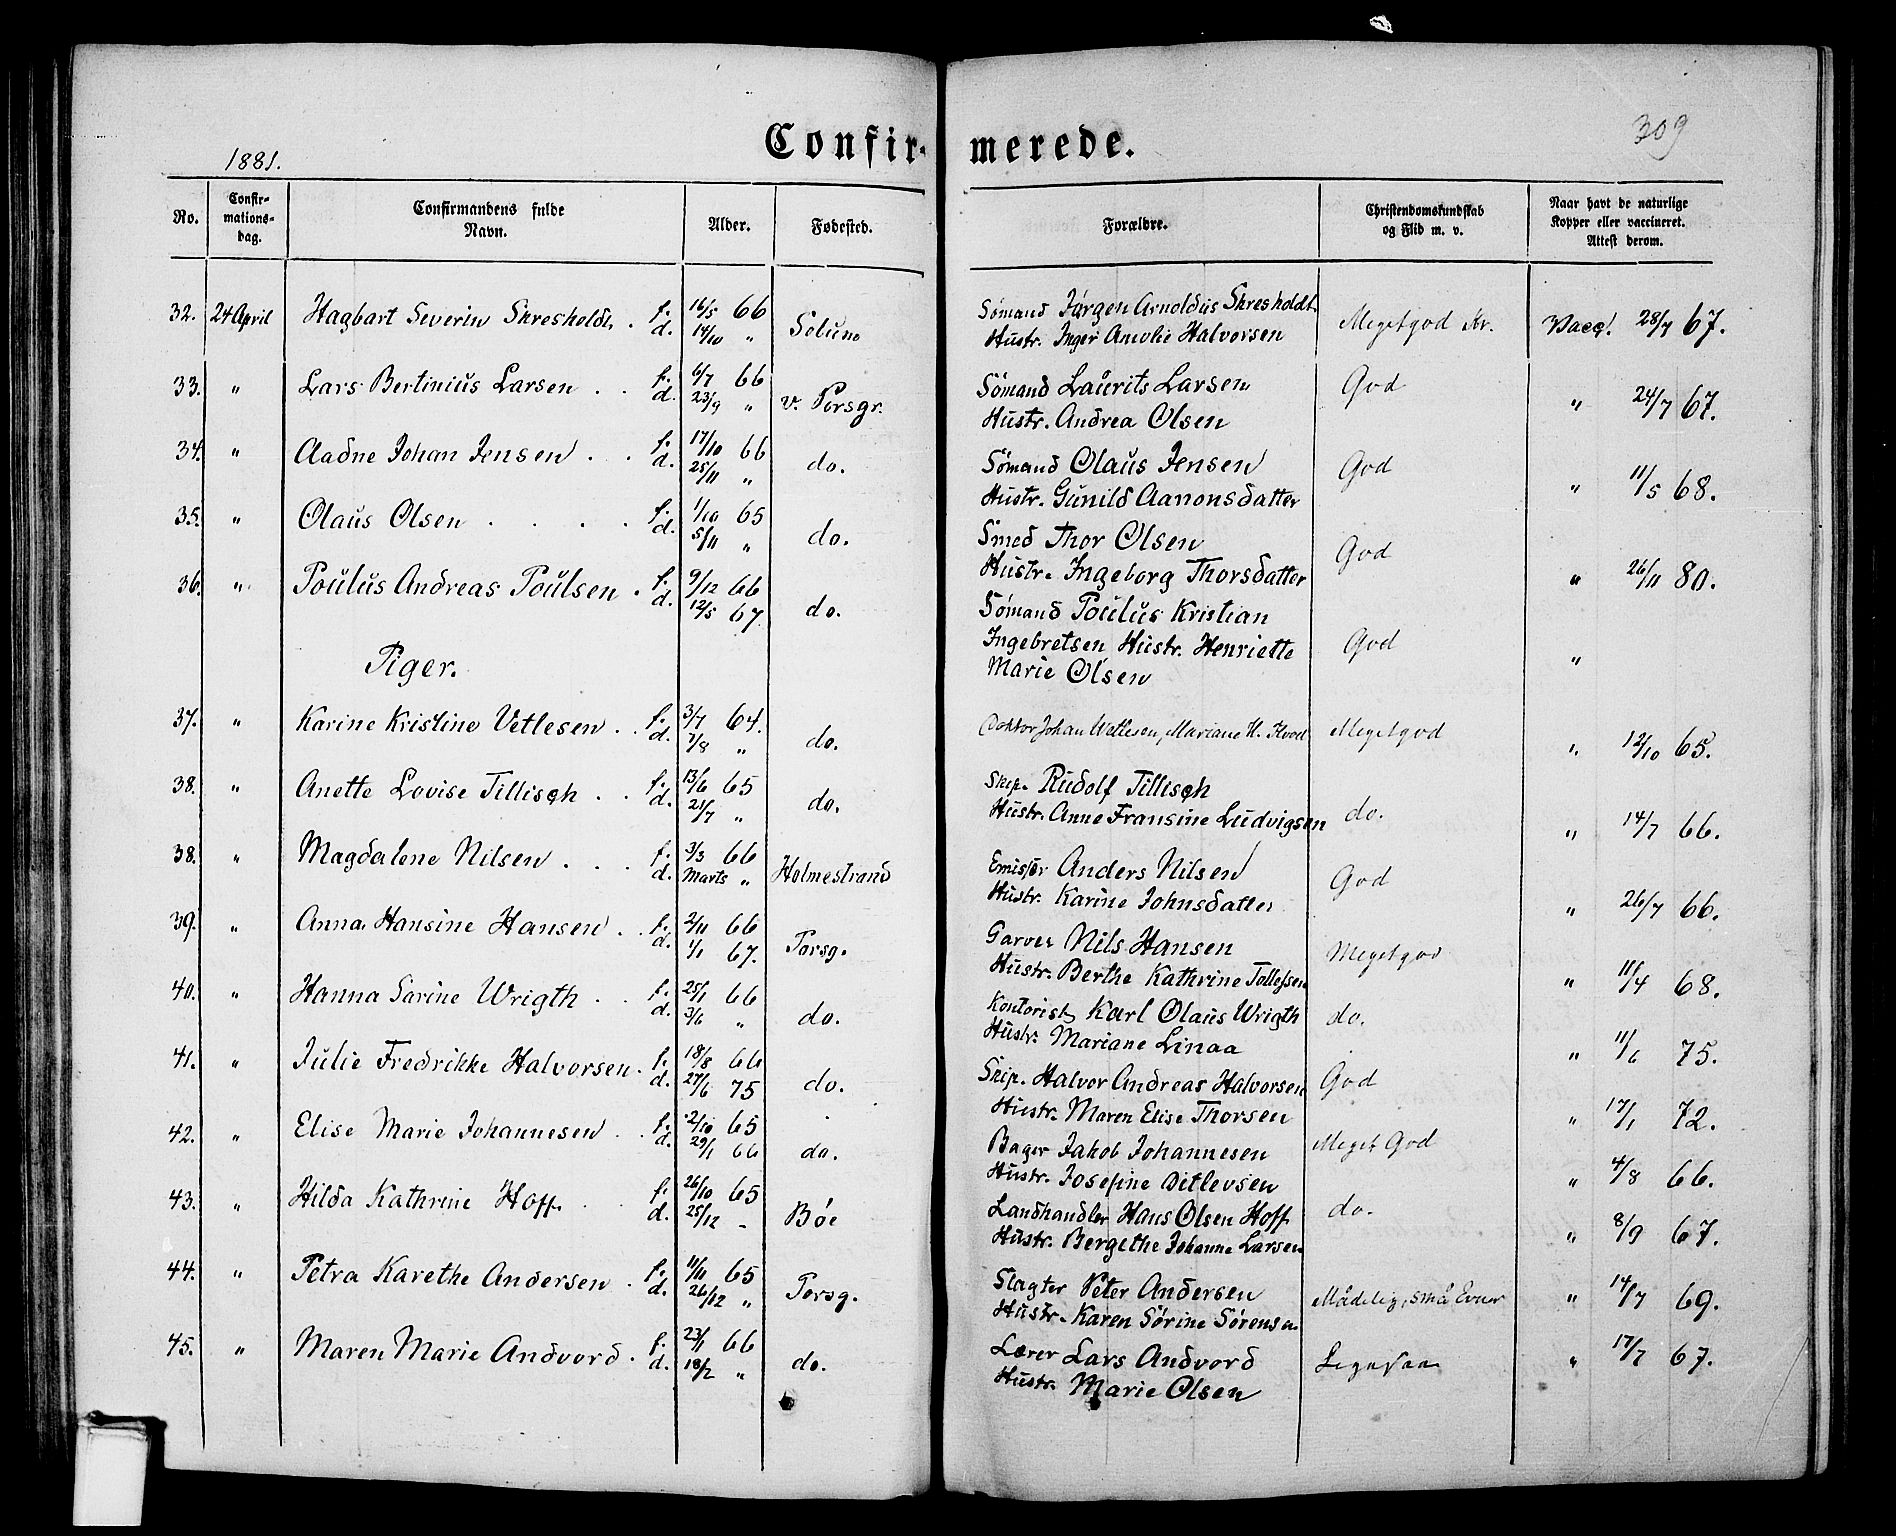 Confirmerede.
309
1881.
No. Confirmationsdag. Confirmandens fulde Navn. Alder. Fødested. Forældre. Christendomskundskab og Flid m. v. Naar havt de naturlige Kopper eller vaccineret. Attest derom.
32. 24 April Hagbart Severin f. 16/5 66 Sømand Jørgen Arnoldus Skresholdt Meget god Vacc. 28/7 67.
d. 14/10 " Hustr. Inger Amolie Halvorsen
33. " Lars Bertinius Larsen . . f. 6/7 66 v. Porsgr. Sømand Laurits Larsen God " 24/7 67.
d. 23/9 " Hustr. Andrea Olsen
34. " Aadne Johan Jensen . . f. 17/10 66 do. Sømand Olaus Jensen God " 11/5 68.
d. 25/11 " Hustr. Gunild Aanonsdatter
35. " Olaus Olsen . . . . f. 1/10 65 do. Smed Thor Olsen God " 26/11 80.
d. 5/11 " Hustr. Ingeborg Thorsdatter
36. " Poulus Andreas Poulsen . f. 9/12 66 do. Sømand Poulus Kristian God "
d. 12/5 67. Ingebretsen Hustr. Henriette
Marie Olsen
Piger.
37. " Karine Kristine Vetlesen . . f. 3/7 64. do. Doktor Johan Wetlesen, Mariane H. Meget god " 12/10 65.
d. 7/8 "
38. " Anette Lovise Tillisch . . f. 13/6 65 do. Skip. Rudolf Tillisch do. " 14/7 66.
d. 21/7 " Hustr. Anne Fransine Ludvigsen
38. " Magdalene Nilsen . . . f. 3/3 66 Holmestrand Emissær Anders Nilsen God " 26/7 66.
d. Marts " Hustr. Karine Johnsdatter
39. " Anna Hansine Hansen . . f. 2/11 66 Porsg. Garver Nils Hansen Meget god " 11/4 68.
d. 1/1 67. Hustr. Berthe Kathrine Tollefsen
40. " Hanna Sarine Wrigth . . f. 25/1 66 do. Kontorist Karl Olaus Wrigth do. " 11/6 75.
d. 3/6 " Hustr. Mariane Linaa
41. " Julie Fredrikke Halvorsen . f. 18/8 66 do. Skip. Halvor Andreas Halvorsen God " 17/1 72.
d. 27/6 75 Hustr. Maren Elise Thorsen
42. " Elise Marie Johannesen . . f. 2/10 65 do. Bager Jakob Johannesen Meget God " 4/8 66.
d. 29/1 66 Hustr. Josefine Ditlevsen
43. " Hilda Kathrine Hoff. . . f. 26/10 65 Bøe Landhandler Hans Olsen Hoff do. " 8/9 67.
d. 25/12 - Hustr. Bergithe Johanne Larsen
44. " Petra Karethe Andersen . f. 11/11 65 Porsg. Slagter Peter Andersen Mådelig, små Evner " 14/7 69.
d. 26/12 " Hustr. Karen Sørine Sørensen
45. " Maren Marie Andvord . f. 23/1 66 do. Lærer Lars Andvord " 17/7 67.
d. 18/2 " Hustr. Marie Olsen